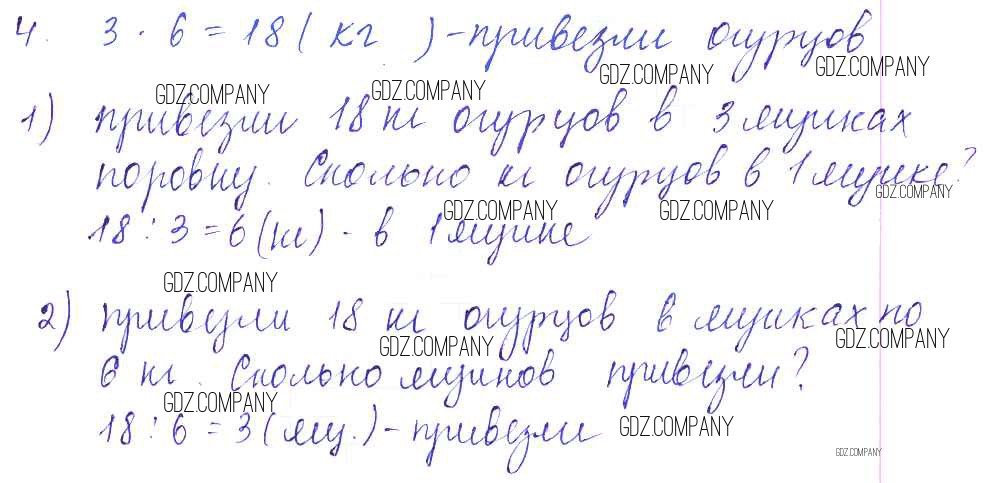 4. 3 · 6 = 18 ( кг ) - привезли огурцов
GDZ.COMPANY GDZ.COMPANY GDZ.COMPANY GDZ.COMPANY
1) привезли 18 кг огурцов в 3 ящиках
поровну. Сколько кг огурцов в 1 ящике?
GDZ.COMPANY GDZ.COMPANY GDZ.COMPANY
18 : 3 = 6 (кг) - в 1 ящике
GDZ.COMPANY
2) привезли 18 кг огурцов в ящиках по
GDZ.COMPANY GDZ.COMPANY
6 кг. Сколько ящиков привезли?
GDZ.COMPANY
18 : 6 = 3 (ящ.) - привезли
GDZ.COMPANY
GDZ.COMPANY